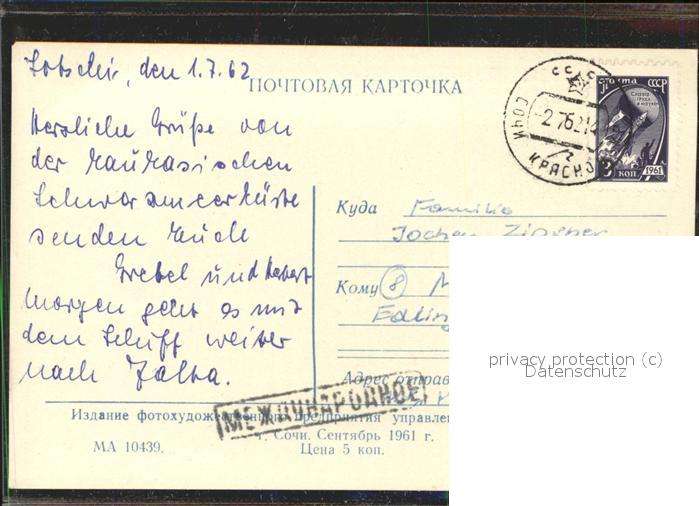 Sotschi, den 1.7.62
ПОЧТОВАЯ КАРТОЧКА
Herzliche Grüße von
der kaukasischen
Schwarzmeerküste
senden Euch
Gretel und
Morgen geht es mit
dem Schiff weiter
nach Jalta.
СССР
СОЧИ
КРАСНОД
почта СССР
3 КОП 1961
Куда Familie
Jochen
Кому 8
Адрес отправ
МЕЖДУНАРОДНОЕ
Издание фотохудожественного предприятия управле
г. Сочи. Сентябрь 1961 г.
МА 10439. Цена 5 коп.
privacy protection (c)
Datenschutz